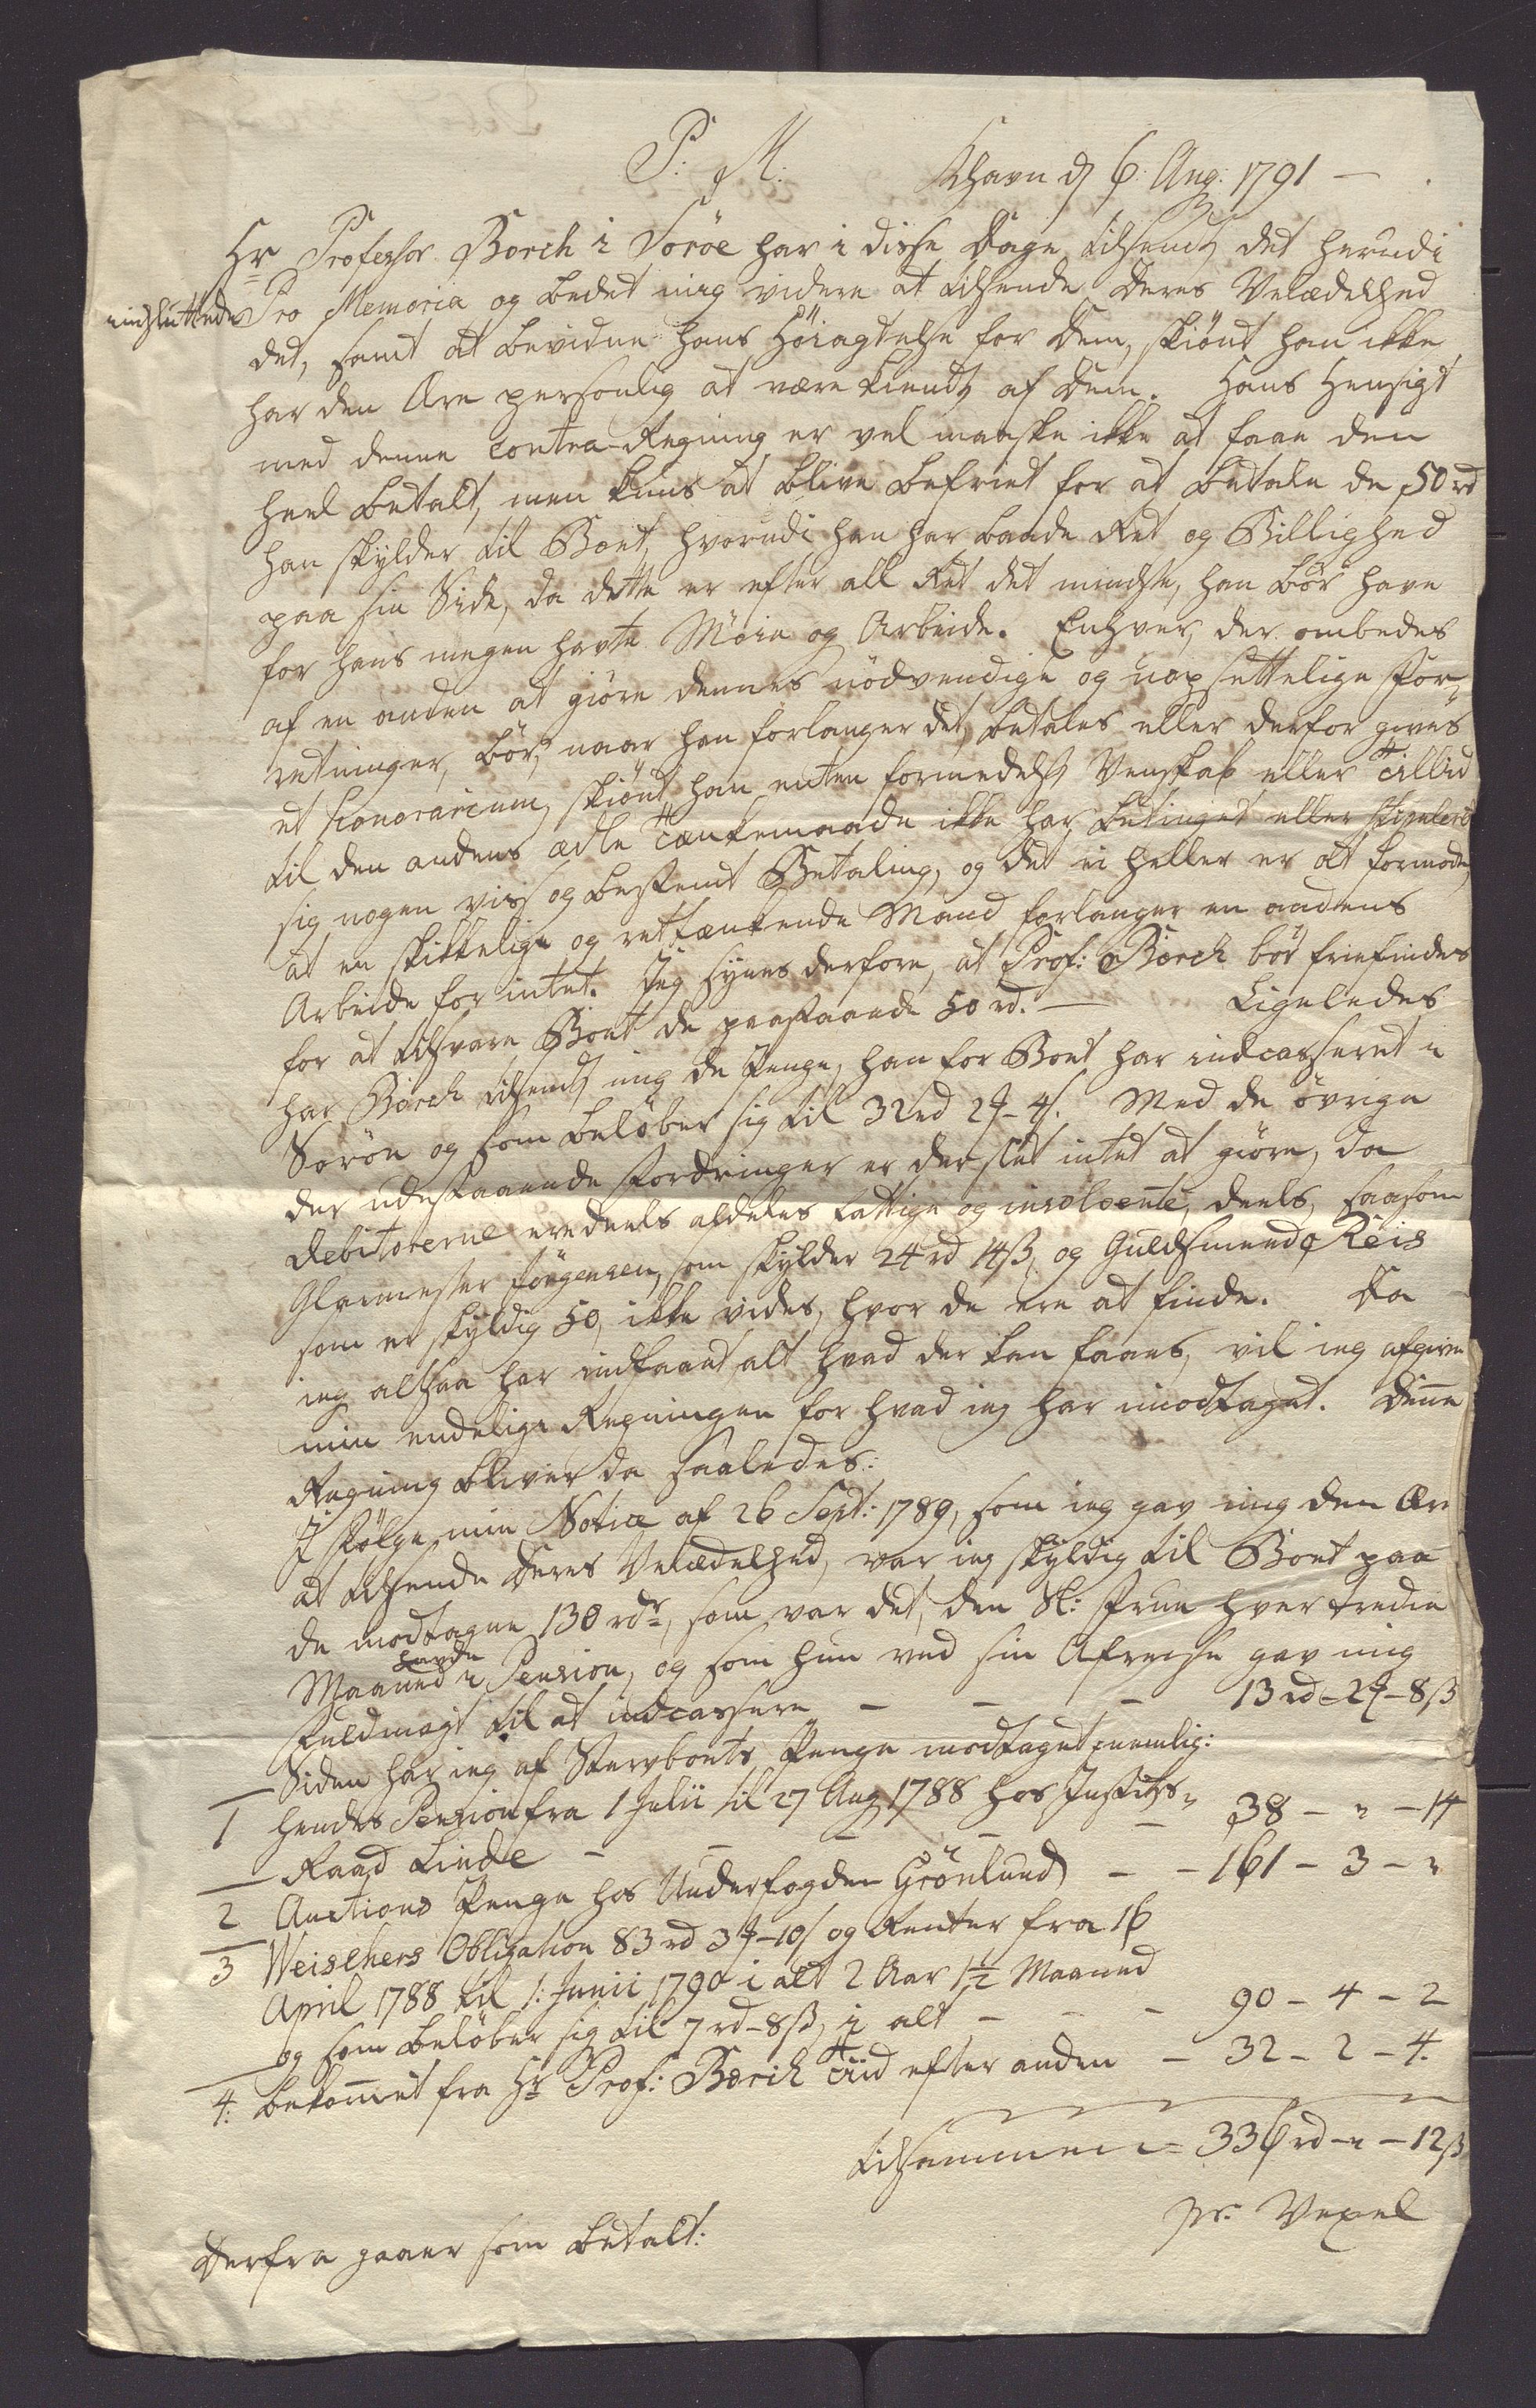 P: M:
Khavn d 6: Aug: 1791 —
Hr Professor Borch i Soröe har i disse Dage tilsendt det herudi
indsluttede Pro Memoria og bedet mig videre at tilsende Deres Velædelhed
det, samt at bevidne hans Höiagtelse for Dem, skiönt han ikke
har den Ære personlig at være kiendt af Dem. Hans Hensigt
med denne contra-Regning er vel maaske ikke at faae den
heel betalt, men kuns at blive befriet for at betale de 50 rd
han skylder til Boet, hvorudi han har baade Ret og Billighed
paa sin Side, da dette er efter all Ret det mindste, han bör have
for hans megen havte Möie og Arbeide. Enhver, der ombedes
af en anden at giöre dennes nödvendige og uopsettelige For-
retninger, bör, naar han forlanger det, betales eller derfor gives
et honorarium, skiönt han enten formedelst Venskab eller Tillid
til den andens ædle Tænkemaade ikke har betinget eller stipuleret
sig nogen vis og bestemt Betaling, og det ei heller er at formode,
at en skikkelige og rettænkende Mand forlanger en andens
Arbeide for intet. Jeg synes derfore, at Prof: Borch bör friefindes
for at tilsvare Boet de paastaaende 50 rd. — Ligeledes
har Borch tilsendt mig de Penge, han for Boet har indcasseret i
Soröe og som belöber sig til 32 rd 2 ₰ - 4 s. Med de övrige
der udestaaende Fordringer er der slet intet at giöre, da
Debitorerne ere deels aldeles fattige og insolvente, deels, saasom
Glarmester Jörgensen, som skylder 24 rd 14 ß, og Guldsmend Reis
som er skyldig 50, ikke vides, hvor de ere at finde. Da
ieg altsaa har indfaaet alt hvad der kan faaes, vil ieg afgive
min endelige Regningen for hvad ieg har imodtaget. Denne
Regning bliver da saaledes:
I Fölge min Notice af 26 Sept: 1789, som ieg gav mig den Ære
at tilsende Deres Velædelhed, var ieg skyldig til Boet paa
de modtagne 130 rdr, som var det, den Sl: Frue hver tredie
Maaned havde i Pension, og som hun ved sin Afreise gav mig
Fuldmagt til at indcassere — — — 13 rd - 2 ₰ - 8 ß
Siden har ieg af Stervboets Penge modtaget nemlig:
1 hendes Pension fra 1 Julii til 27 Aug 1788 hos Justits-
Raad Linde — — — — — 38 - " - 14
2 Auctions Penge hos Underfogden Grönlund — — 161 - 3 - "
3 Weischers Obligation 83 rd 3 ₰ - 10 s og Renter fra 16
April 1788 til 1: Junii 1790 i alt 2 Aar 1½ Maaned
og som belöber sig til 7 rd - 8 ß, i alt — — — 90 - 4 - 2
4: bekommet fra Hr Prof: Borch Tiid efter anden — 32 - 2 - 4.
tilsammen = 336 rd - " - 12 ß
Derfra gaaer som betalt:
pr. Vexel